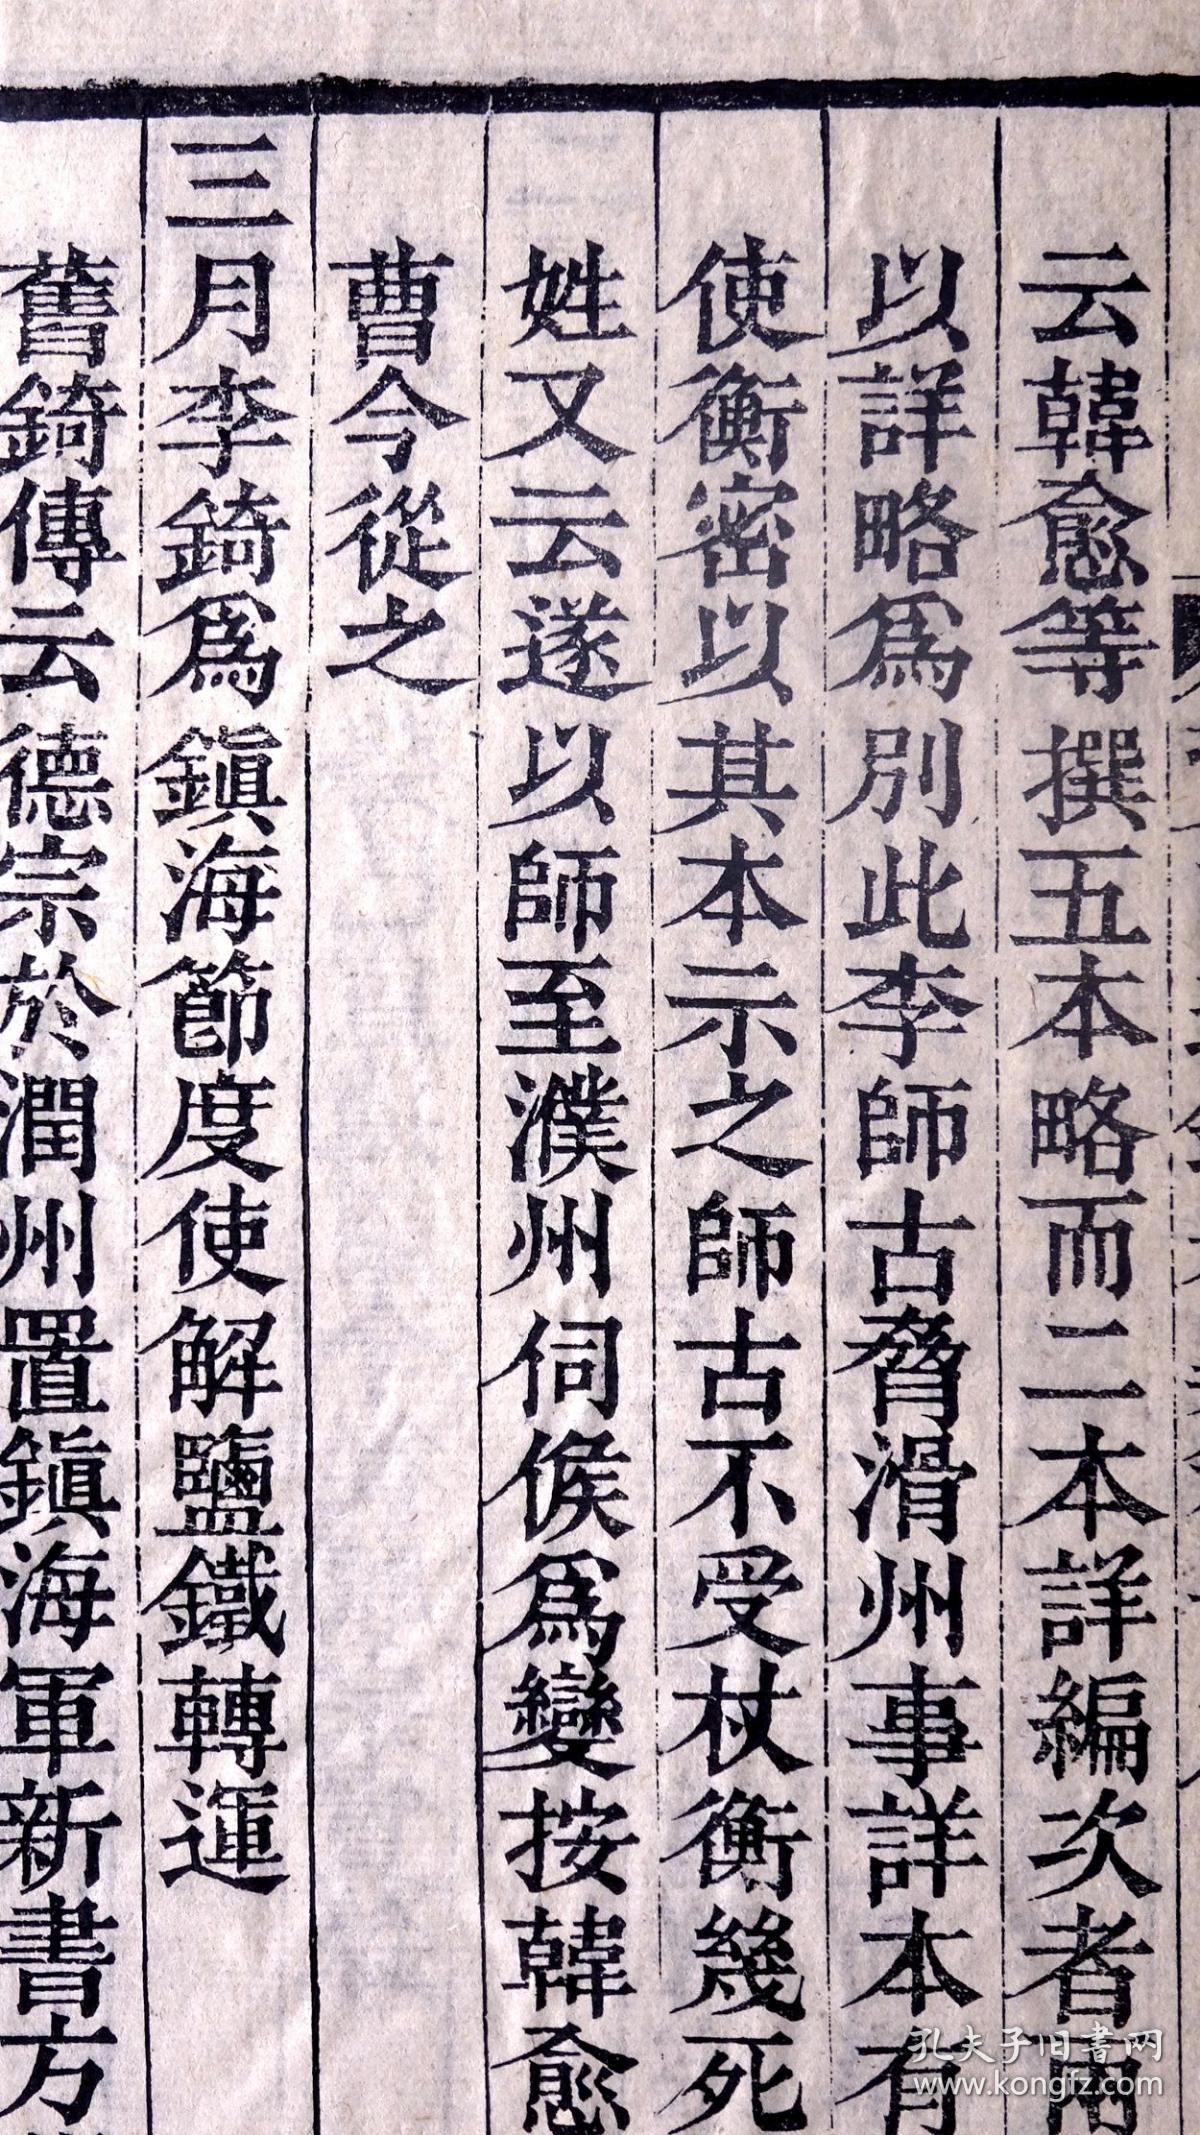 云韓愈等撰五本略而二本詳編次者兩
以詳略爲別此李師古脅滑州事詳本有
使衡密以其本示之師古不受杖衡幾死
姓又云遂以師至濮州伺候爲變按韓愈
曹今從之
三月李錡爲鎮海節度使解鹽鐵轉運
舊錡傳云德宗於潤州置鎮海軍新書方
孔夫子旧书网
www.kongfz.com